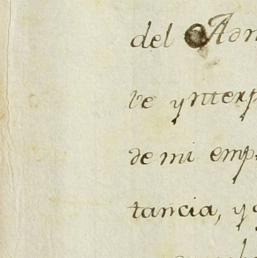 del Adn
ve ynterp
de mi emp
tancia, y g